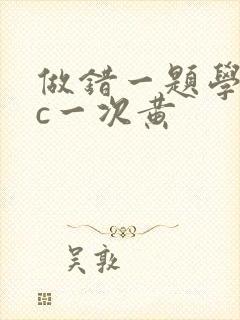 做錯一題學
c一次黃
吴敦